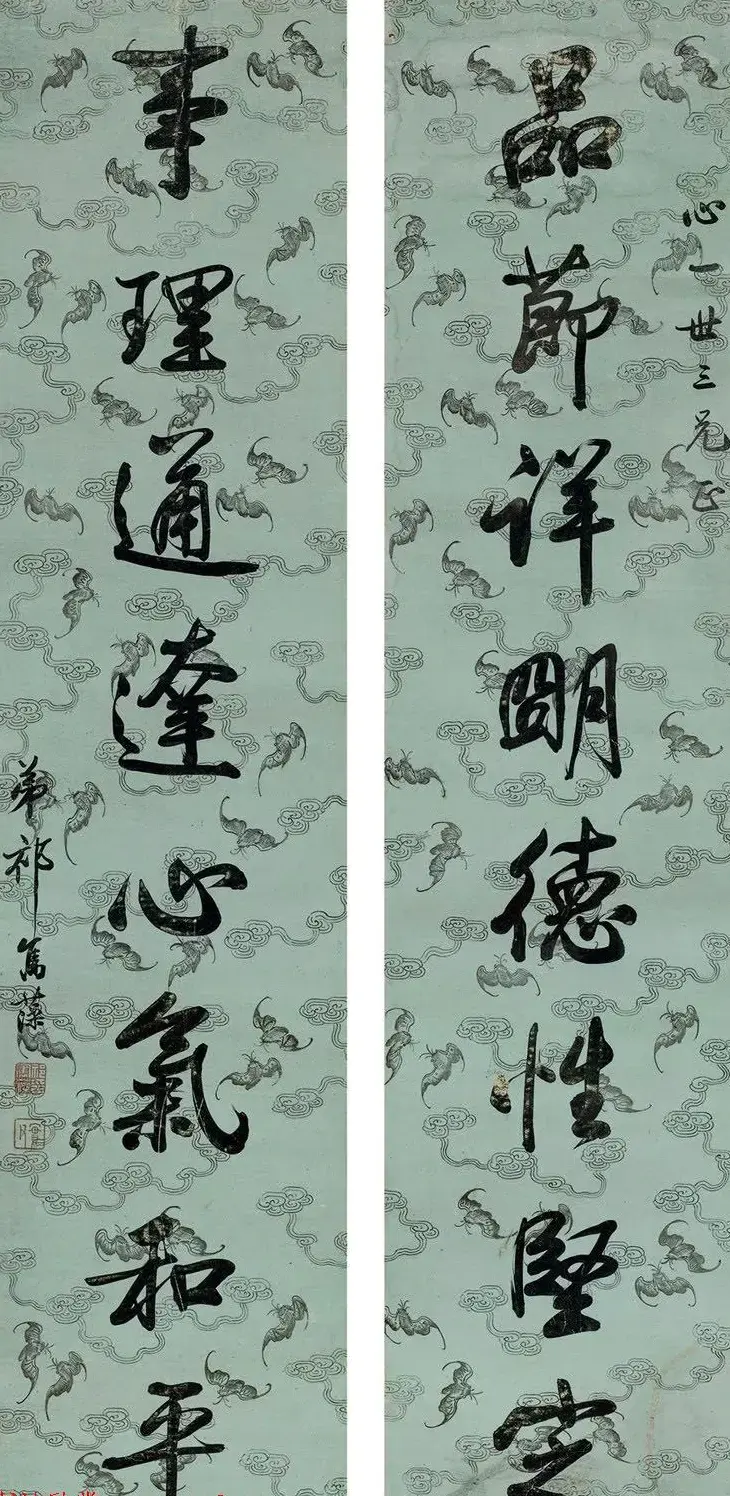 心一世三兄正
品節詳朙德性堅定
事理通達心氣和平
弟祁寯藻